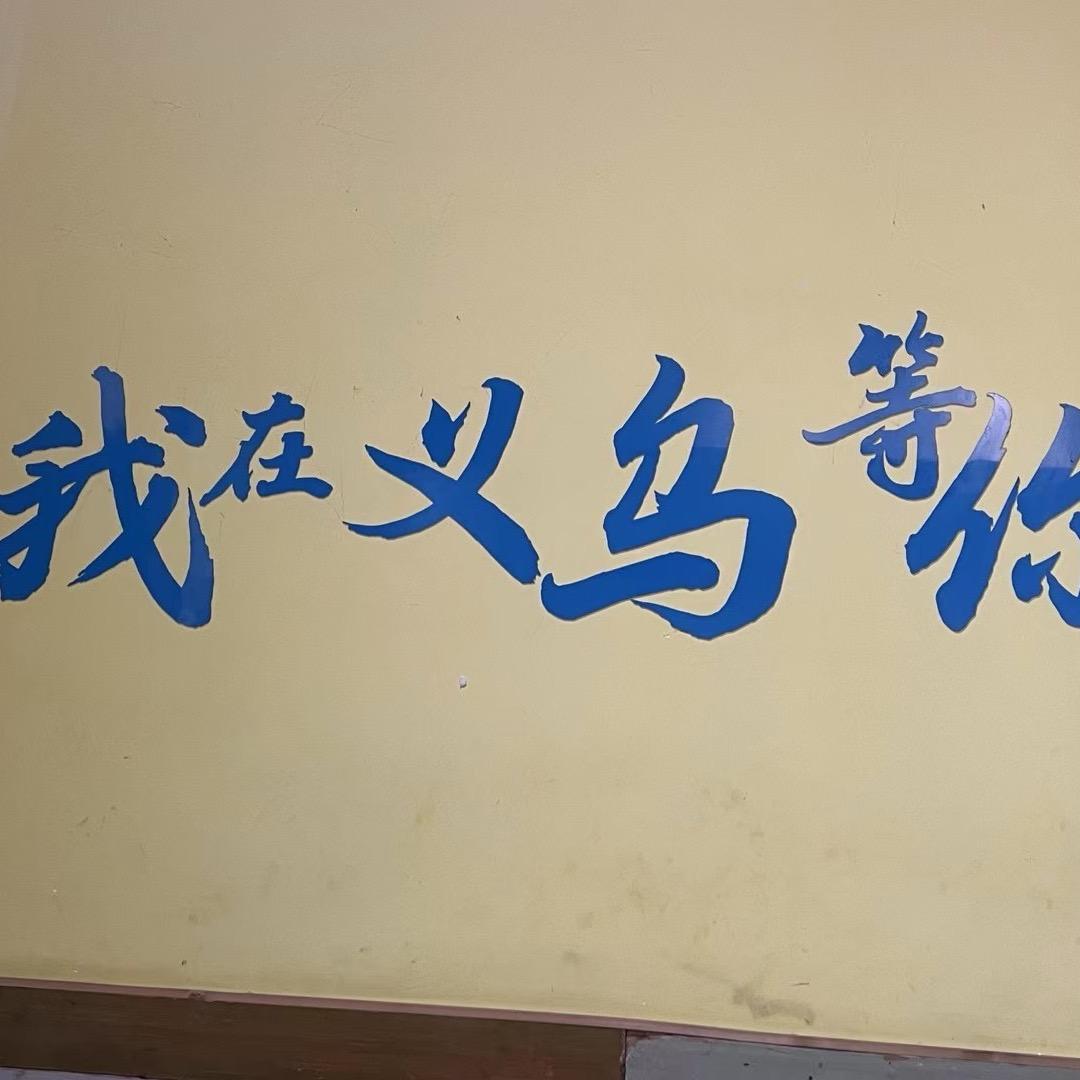 我在义乌等你